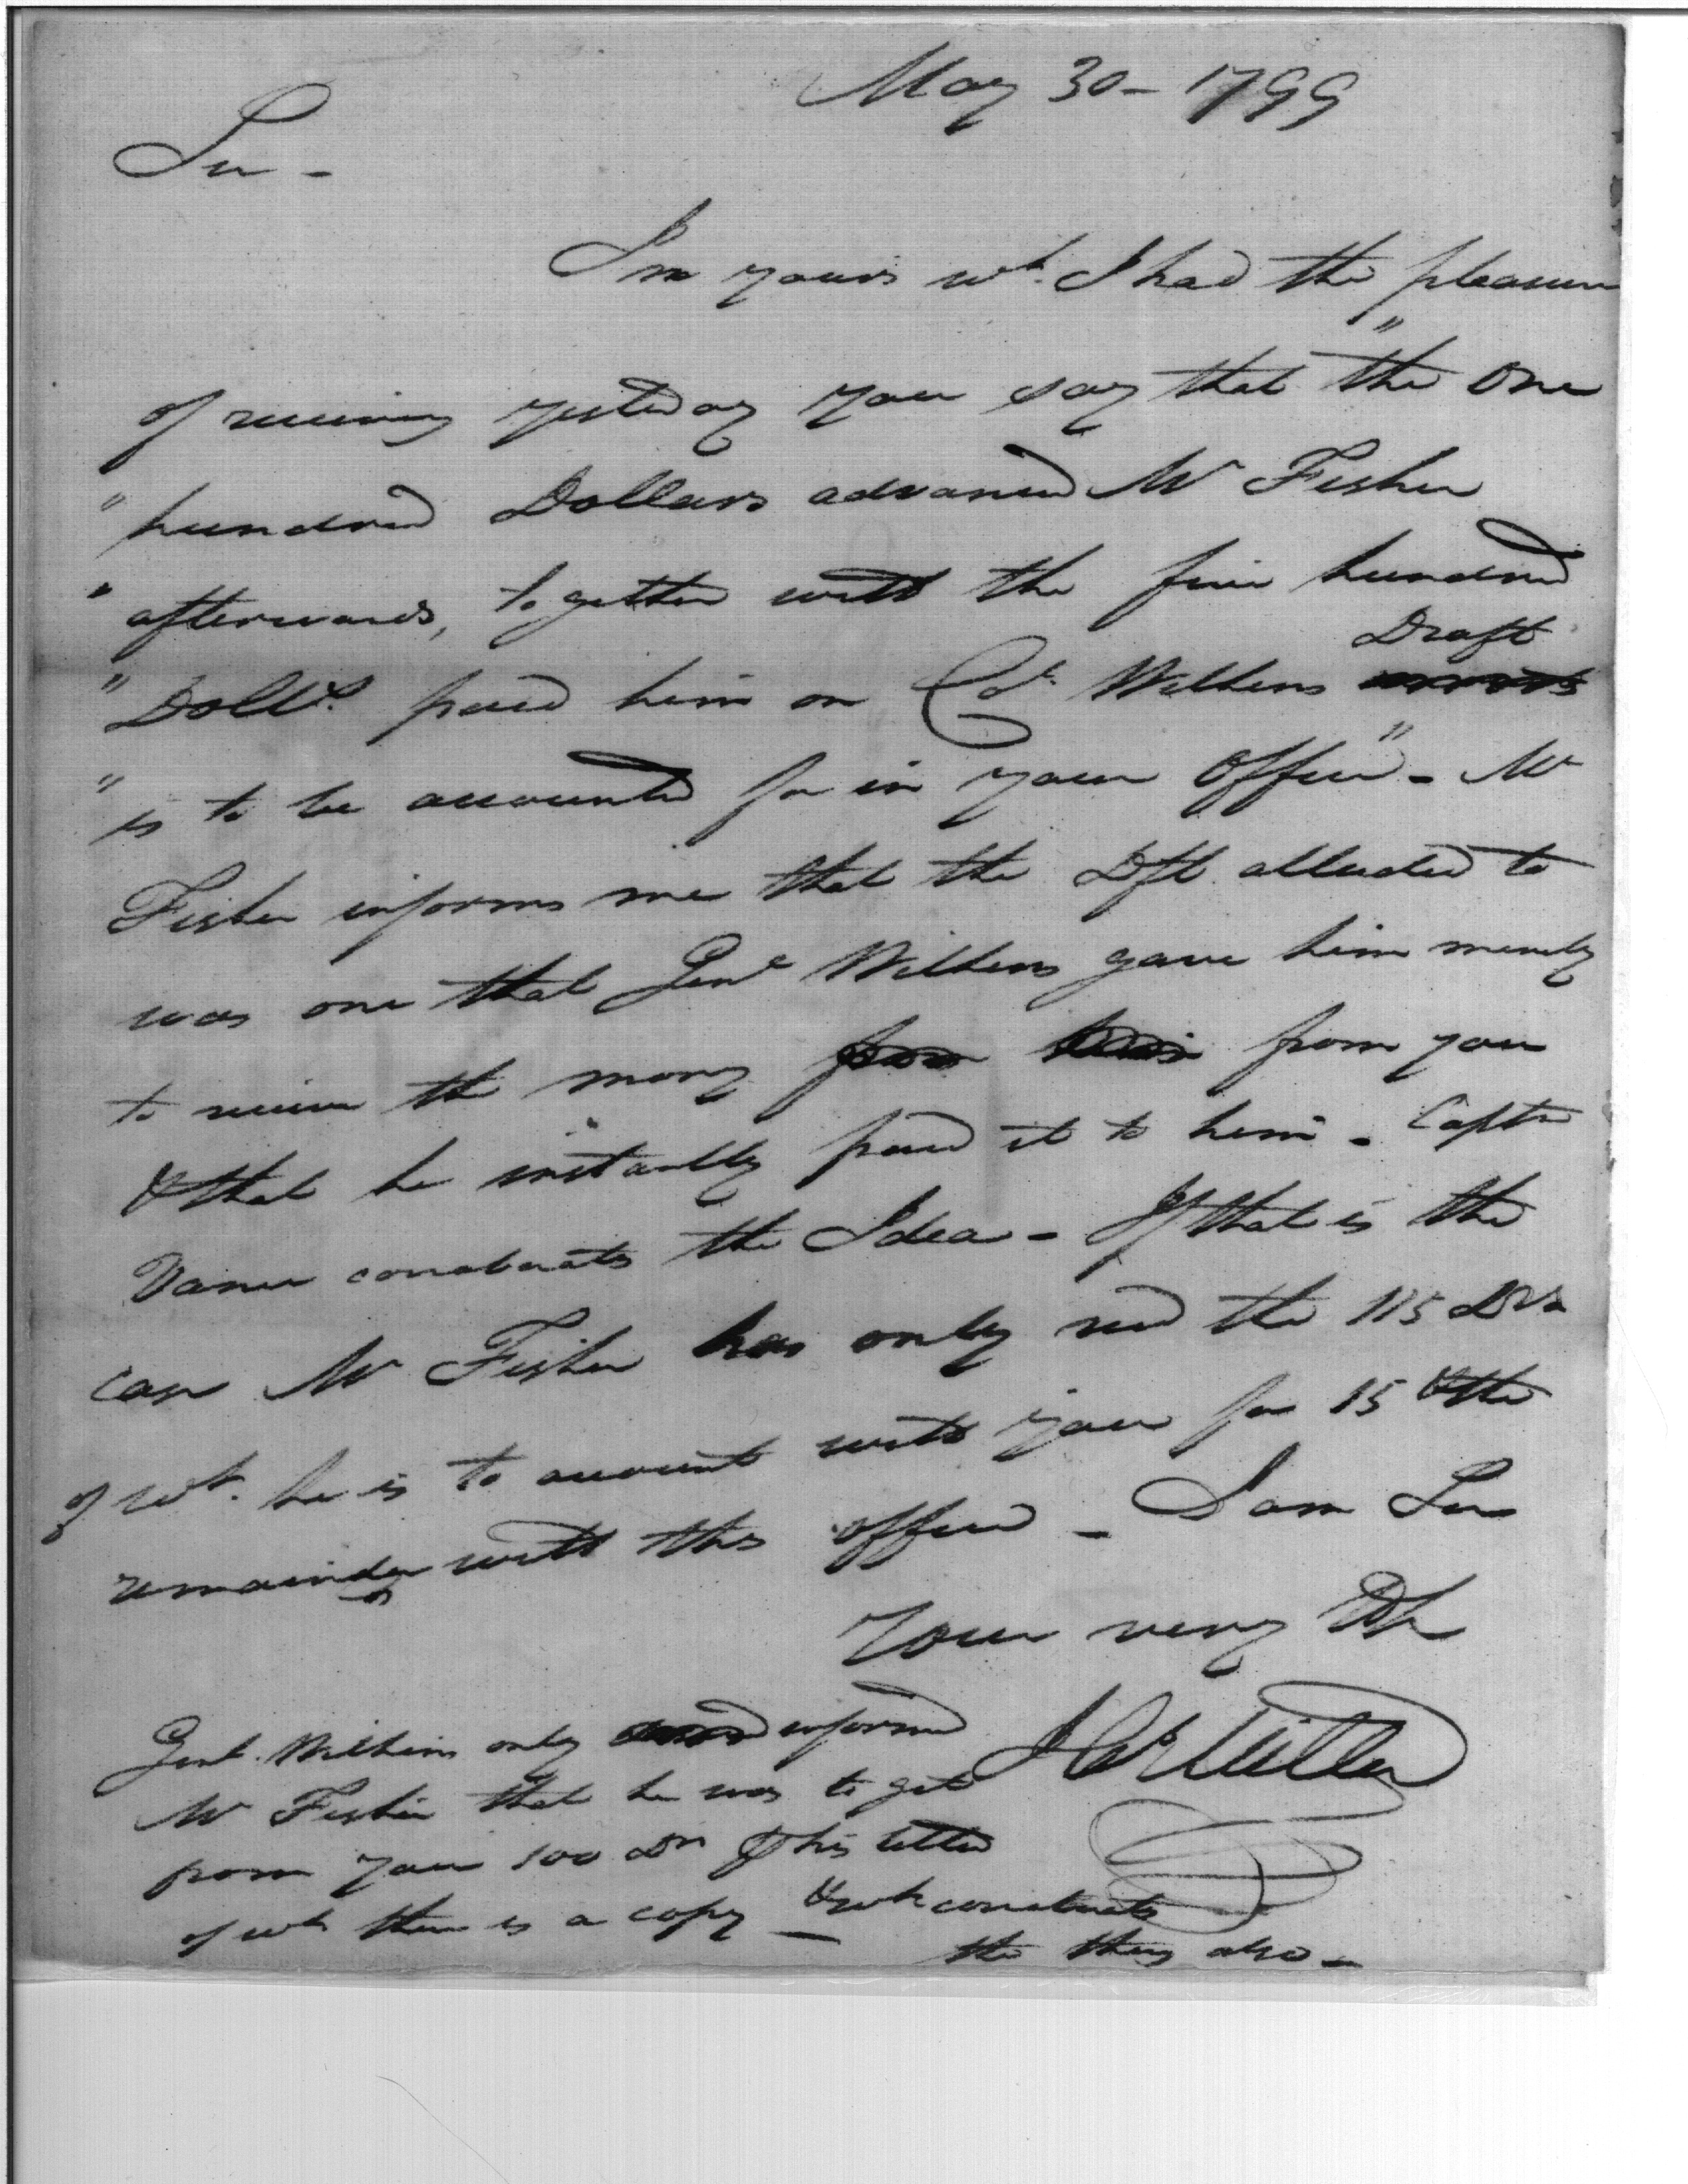 May 30 - 1799
Sir -
In yours wh. I had the pleasure
of receiving yesterday you say that "the one
" hundred Dollars advanced Mr Fisher
" afterwards, together with the five hundred
Draft
" Dolls. paid him on Wilkins
" is to be accounted for in your office" - Mr
Fisher informs me that the Dft. alluded to
was one that Genl Wilkins gave him merely
to receive the money from you
& that he instantly paid it to him - Captn
Vance corroborates the Idea - If that is the
case Mr Fisher has only recd the 115 Drs
of wh. he is to account with you for 15 & the
remainder with this office - I am Sir
Your very
Genl. Wilkins only informed
Mr Fisher that he was to get
from you 100 Drs his letter
of wh there is a copy - & wh corroborates
the thing also -